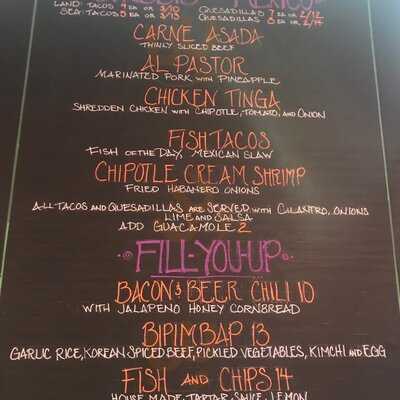 MEXICO
LAND: TACOS 4 EA OR 3/10 QUESADILLAS 7 EA OR 2/12
SEA: TACOS 5 EA OR 3/13 QUESADILLAS 8 EA OR 2/14
CARNE ASADA
THINLY SLICED BEEF
AL PASTOR
MARINATED PORK WITH PINEAPPLE
CHICKEN TINGA
SHREDDEN CHICKEN WITH CHIPOTLE, TOMATO, AND ONION
FISH TACOS
FISH OF THE DAY, MEXICAN SLAW
CHIPOTLE CREAM SHRIMP
FRIED HABANERO ONIONS
ALL TACOS AND QUESADILLAS ARE SERVED WITH CILANTRO, ONIONS
LIME AND SALSA
ADD GUACAMOLE 2
FILL-YOU-UP
BACON & BEER CHILI 10
WITH JALAPENO HONEY CORNBREAD
BIPIMBAP 13
GARLIC RICE, KOREAN SPICED BEEF, PICKLED VEGETABLES, KIMCHI AND EGG
FISH AND CHIPS 14
HOUSE MADE TARTAR SAUCE, LEMON